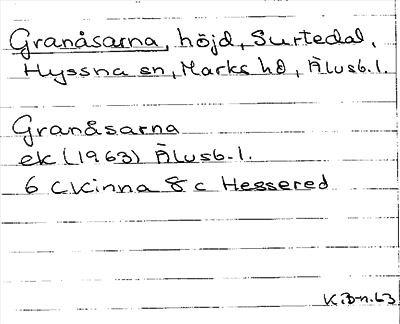 Granåsarna, höjd, Surtedal,
Hyssna sn, Marks hd, Älvsb. l.
Granåsarna
ek (1963) Älvsb. l.
6 C Kinna 8 c Hessered
K. Bn. 63